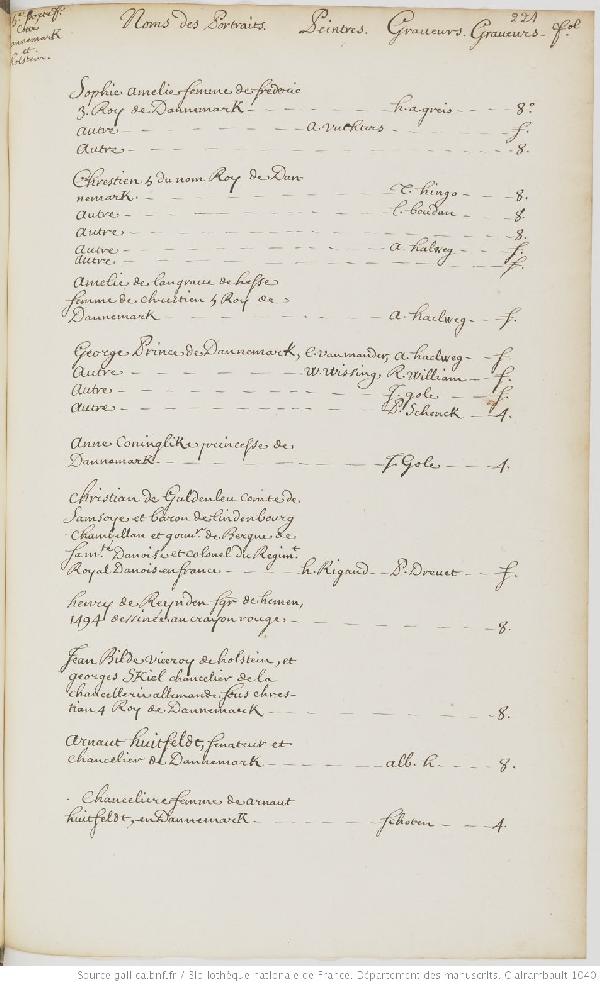 224
Noms des Portraits. Peintres. Graveurs. Graveurs. fol
Dannemark
et
holstein.
Sophie Amelie femme de frederic
3. Roy de Dannemark h. a greis 8º
autre a. vuthurs f.
autre 8.
Chrestien 5 du nom Roy de Dan
nemark C. hingo 8.
autre l. boudan 8.
autre 8.
autre a. halweg f.
autre f.
Amelie de langrave de hesse
femme de Chrestien 5 Roy de
Dannemark a. haelweg f.
George Prince de Dannemark, C. van mander, a. haelweg f.
autre W. Wissing R. William f.
autre J. gole f.
autre P. Schenck 4.
Anne Coninglike princesse de
Dannemark. J. Gole 4.
Christian de Guldenleu Comte de
Samsoye et baron de Lindenbourg
Chambellan et gouvr. de Bergue de
et Colonel du Regimt.
Royal Danois en france h. Rigaud P. Drevet f.
henry de Reynden sgr de hemen,
1494 dessiné au crayon rouge. 8.
Jean Bilde viceroy de holstein, et
georges SKiel chancelier de la
chancellerie allemande sous chres-
tian 4 Roy de Dannemarck 8.
Arnaut huitfeldt, senateur et
chancelier de Dannemark alb. h. 8.
Chanceliere femme de arnaut
huitfeldt, en Dannemark schoten 4.
Source gallica.bnf.fr / Bibliothèque nationale de France. Département des manuscrits. Clairambault 1040